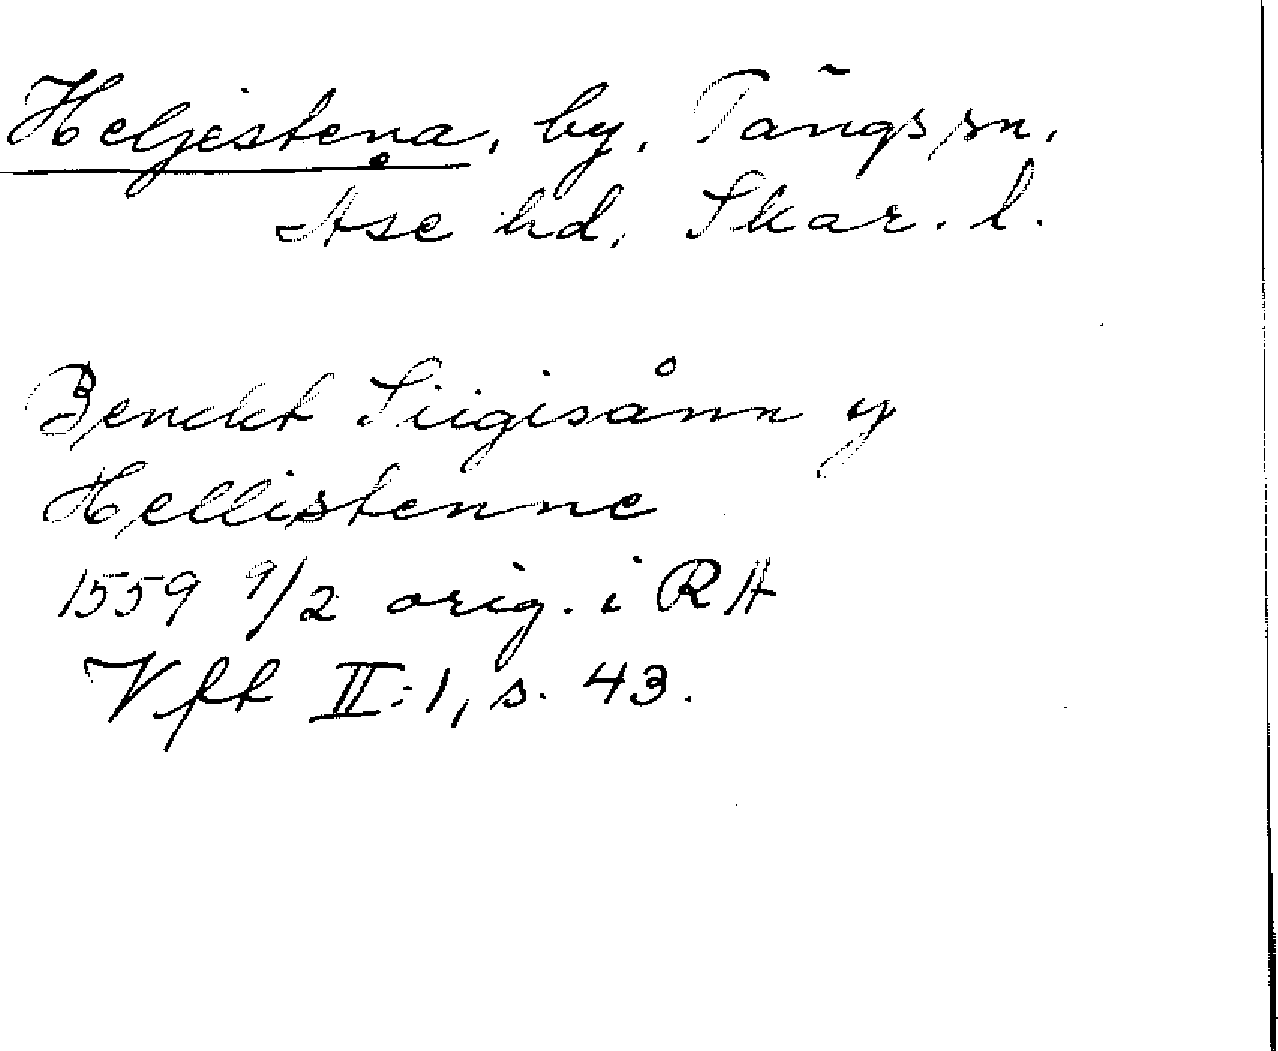 Heljestena, by, Tångs sn,
Åse hd, Skar. l.
Bendt Siigisånn y
Hellistenne
1559 9/2 orig. i RA
Vfft II:1, s. 43.